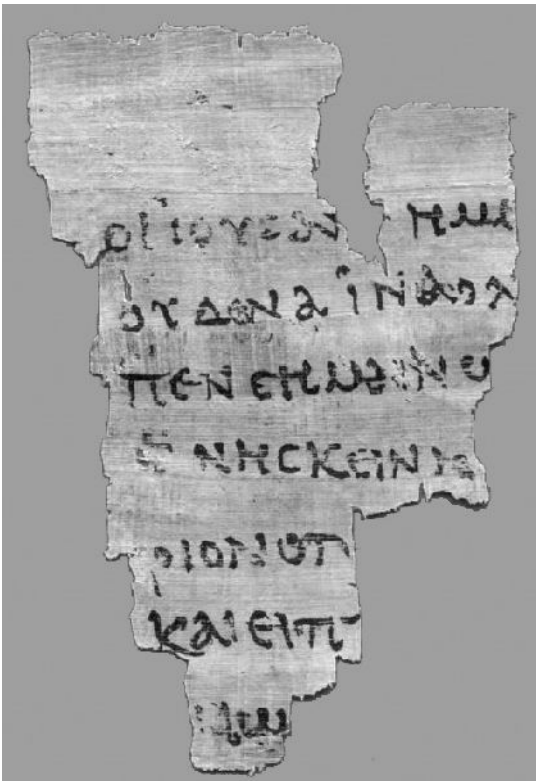 ΟΙΪΟΥΔΑΙ ΗΜ
ΟΥΔΕΝΑΪΝΑΟΛ
ΠΕΝϹΗΜΑΙΝΩ
ΘΝΗϹΚΕΙΝΙϹ
ΡΙΟΝΟΠ
ΚΑΙΕΙΠ
ΑΙΩ